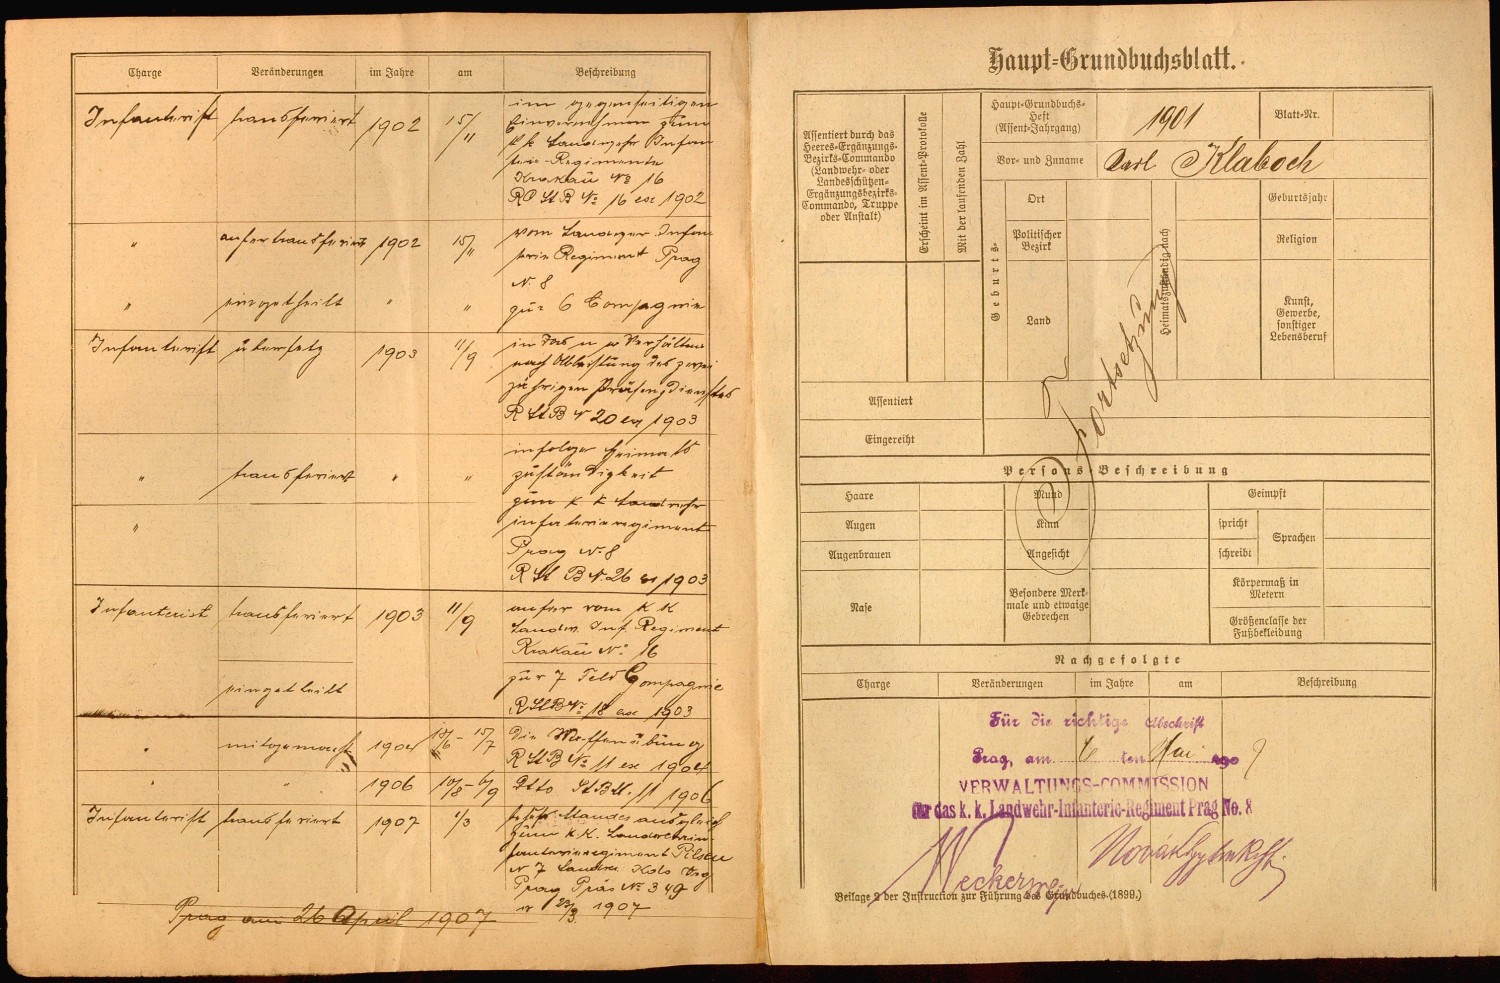 Charge Veränderungen im Jahre am Beschreibung
Infanterist transferiert 1902 15/11 im gegenseitigen
Einvernehmen zum
k k Landwehr Infan
terie-Regimente
Krakau No 16
R St B No 16 ex 1902
" anhertransferiert 1902 15/11 vom Landwehr Infan
terie Regiment Prag
N. 8
" eingetheilt " " zur 6 Compagnie
Infanterist übersetzt 1903 11/9 in das n a Verhältnis
nach Ableistung des zwei
jährigen Präsenzdienstes
R St B N 20 ex 1903
" transferiert " " infolge Heimats
zuständigkeit
zum K K Landwehr
" infanterieregiment
Prag No 8
R St B N. 26 ex 1903
Infanterist transferiert 1903 11/9 anher vom K K
Landw. Inf. Regiment
Krakau No 16
eingetheilt zur 7 Feld Compagnie
R St B No 18 ex 1903
" mitgemacht 1904 18/6 - 15/7 Die Waffenübung
R St B No 11 ex 1904
" " 1906 10/8 - 6/9 Dtto St B N. 11 1906
Infanterist transferiert 1907 1/3 Standesausgleich
zum K. K. Landwehrin-
fanterieregiment Pilsen
N 7 Landw. Kdo
Prag Präs No 349
v 23/3 1907
Prag am 26 April 1907
Haupt-Grundbuchsblatt.
Assentiert durch das
Heeres-Ergänzungs-
Bezirks-Commando
(Landwehr- oder
Landesschützen-
Ergänzungsbezirks-
Commando, Truppe
oder Anstalt)
Erscheint im Assent-Protokolle
Mit der laufenden Zahl
Haupt-Grundbuchs-
Heft
(Assent-Jahrgang)
1901
Blatt-Nr.
Vor- und Zuname Karl Klaboch
Geburts-
Ort
Politischer
Bezirk
Land
Heimatszuständig nach
Geburtsjahr
Religion
Kunst,
Gewerbe,
sonstiger
Lebensberuf
Fortsetzung
Assentiert
Eingereiht
Persons-Beschreibung
Haare Mund Geimpft
Augen Kinn spricht Sprachen
Augenbrauen Angesicht schreibt
Nase
Besondere Merk-
male und etwaige
Gebrechen
Körpermaß in
Metern
Größenclasse der
Fußbekleidung
Nachgefolgte
Charge Veränderungen im Jahre am Beschreibung
Für die richtige Abschrift
Prag, am 6 ten Mai 1907
VERWALTUNGS-COMMISSION
für das k. k. Landwehr-Infanterie-Regiment Prag No. 8
Beilage 2 der Instruction zur Führung des Grundbuches (1899.)